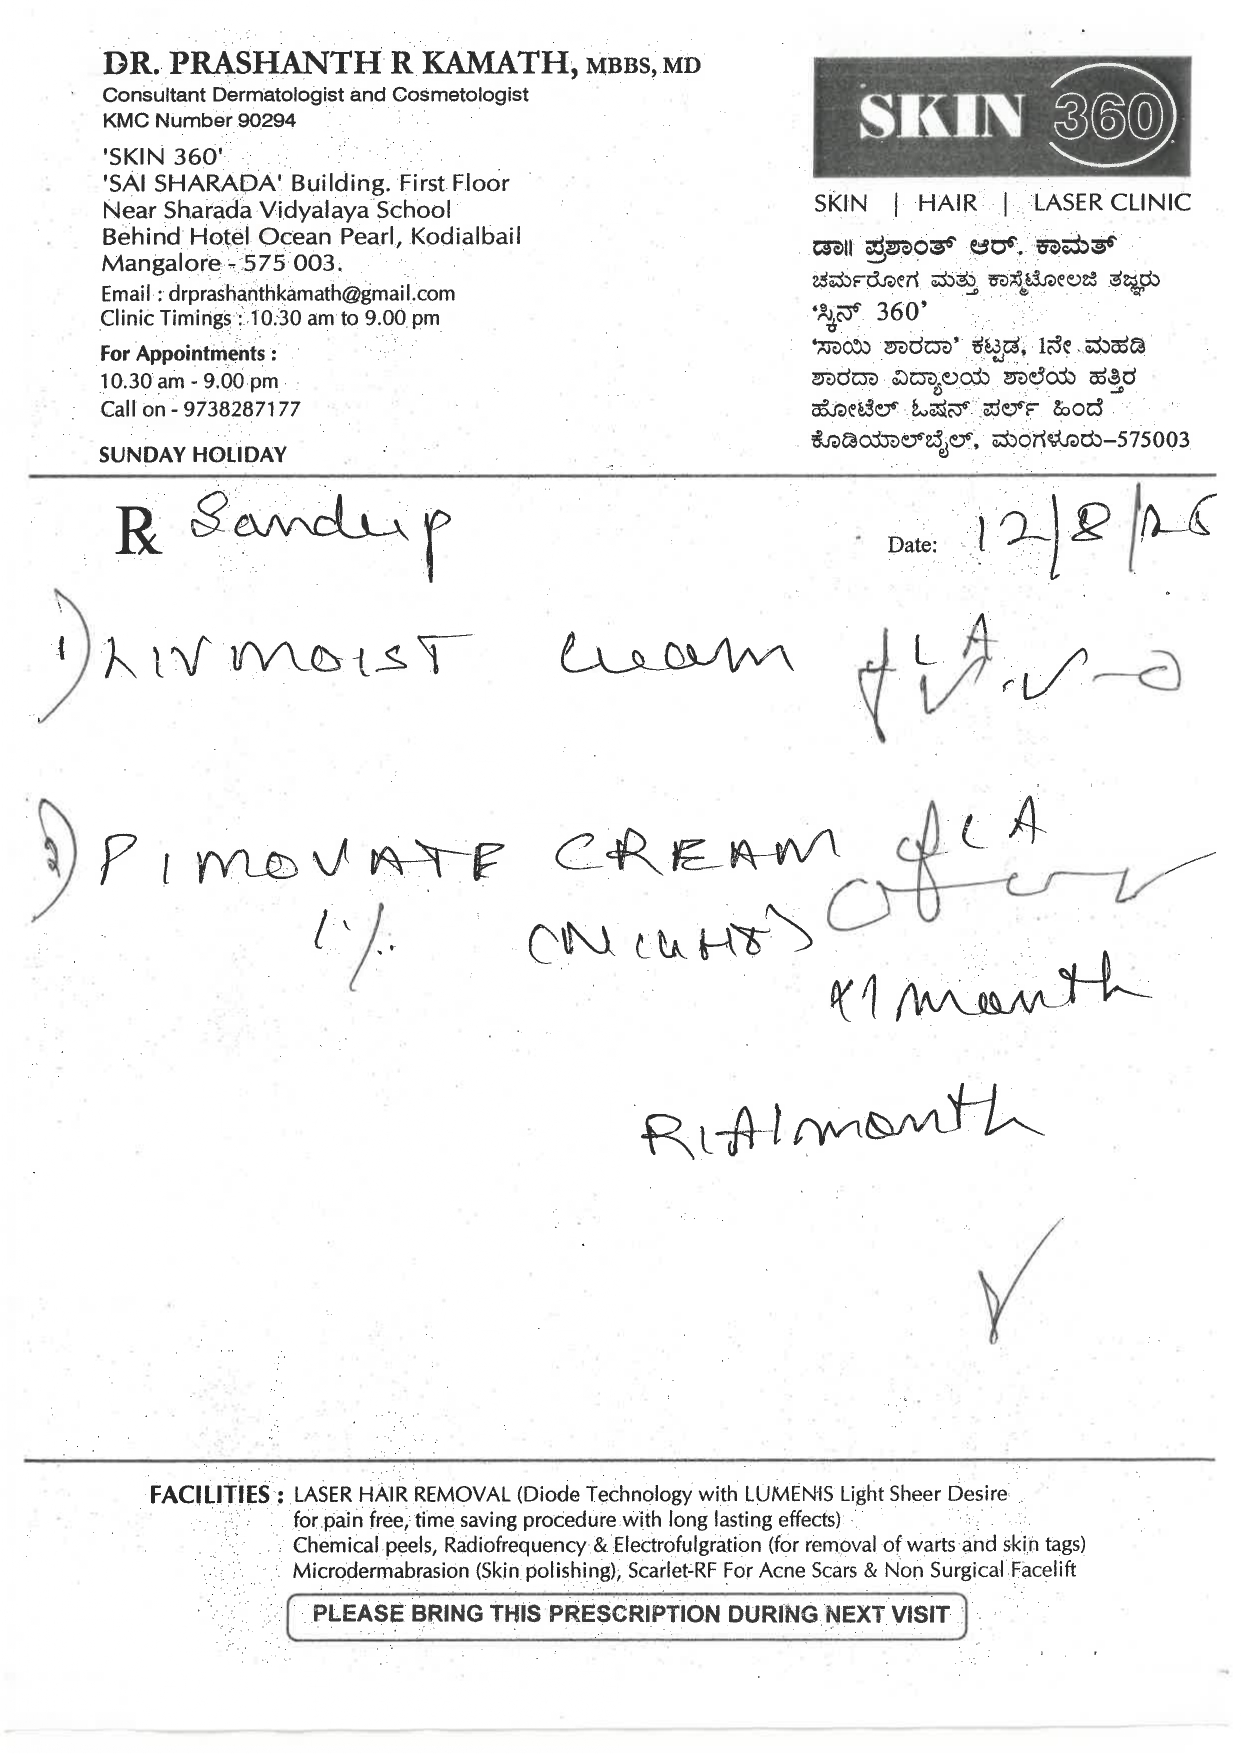 DR. PRASHANTH R KAMATH, MBBS, MD
Consultant Dermatologist and Cosmetologist
KMC Number 90294
'SKIN 360'
'SAI SHARADA' Building. First Floor
Near Sharada Vidyalaya School
Behind Hotel Ocean Pearl, Kodialbail
Mangalore - 575 003.
Email : drprashanthkamath@gmail.com
Clinic Timings : 10.30 am to 9.00 pm
For Appointments :
10.30 am - 9.00 pm
Call on - 9738287177
SUNDAY HOLIDAY
SKIN 360
SKIN | HAIR | LASER CLINIC
ಡಾ|| ಪ್ರಶಾಂತ್ ಆರ್. ಕಾಮತ್
ಚರ್ಮರೋಗ ಮತ್ತು ಕಾಸ್ಮೆಟೋಲಜಿ ತಜ್ಞರು
'ಸ್ಕಿನ್ 360'
'ಸಾಯಿ ಶಾರದಾ' ಕಟ್ಟಡ, 1ನೇ ಮಹಡಿ
ಶಾರದಾ ವಿದ್ಯಾಲಯ ಶಾಲೆಯ ಹತ್ತಿರ
ಹೋಟೆಲ್ ಓಷನ್ ಪರ್ಲ್ ಹಿಂದೆ
ಕೊಡಿಯಾಲ್‌ಬೈಲ್, ಮಂಗಳೂರು-575003
℞ Sandeep Date: 12/8/
1) LIVMOIST cream LA
2) PIMOVATE CREAM LA
1% (NIGHT)
x1 month
R/A 1 month
FACILITIES : LASER HAIR REMOVAL (Diode Technology with LUMENIS Light Sheer Desire
for pain free, time saving procedure with long lasting effects)
Chemical peels, Radiofrequency & Electrofulgration (for removal of warts and skin tags)
Microdermabrasion (Skin polishing), Scarlet-RF For Acne Scars & Non Surgical Facelift
PLEASE BRING THIS PRESCRIPTION DURING NEXT VISIT